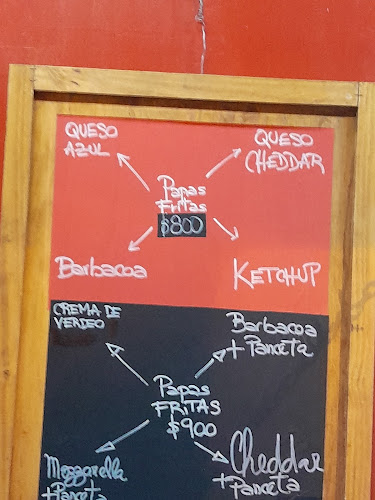 QUESO
AZUL
QUESO
CHEDDAR
Papas
Fritas
$800
Barbacoa
KETCHUP
CREMA DE
VERDEO
Barbacoa
+ Panceta
Papas
FRITAS
$900
Mozzarella
+ Panceta
Cheddar
+ Panceta